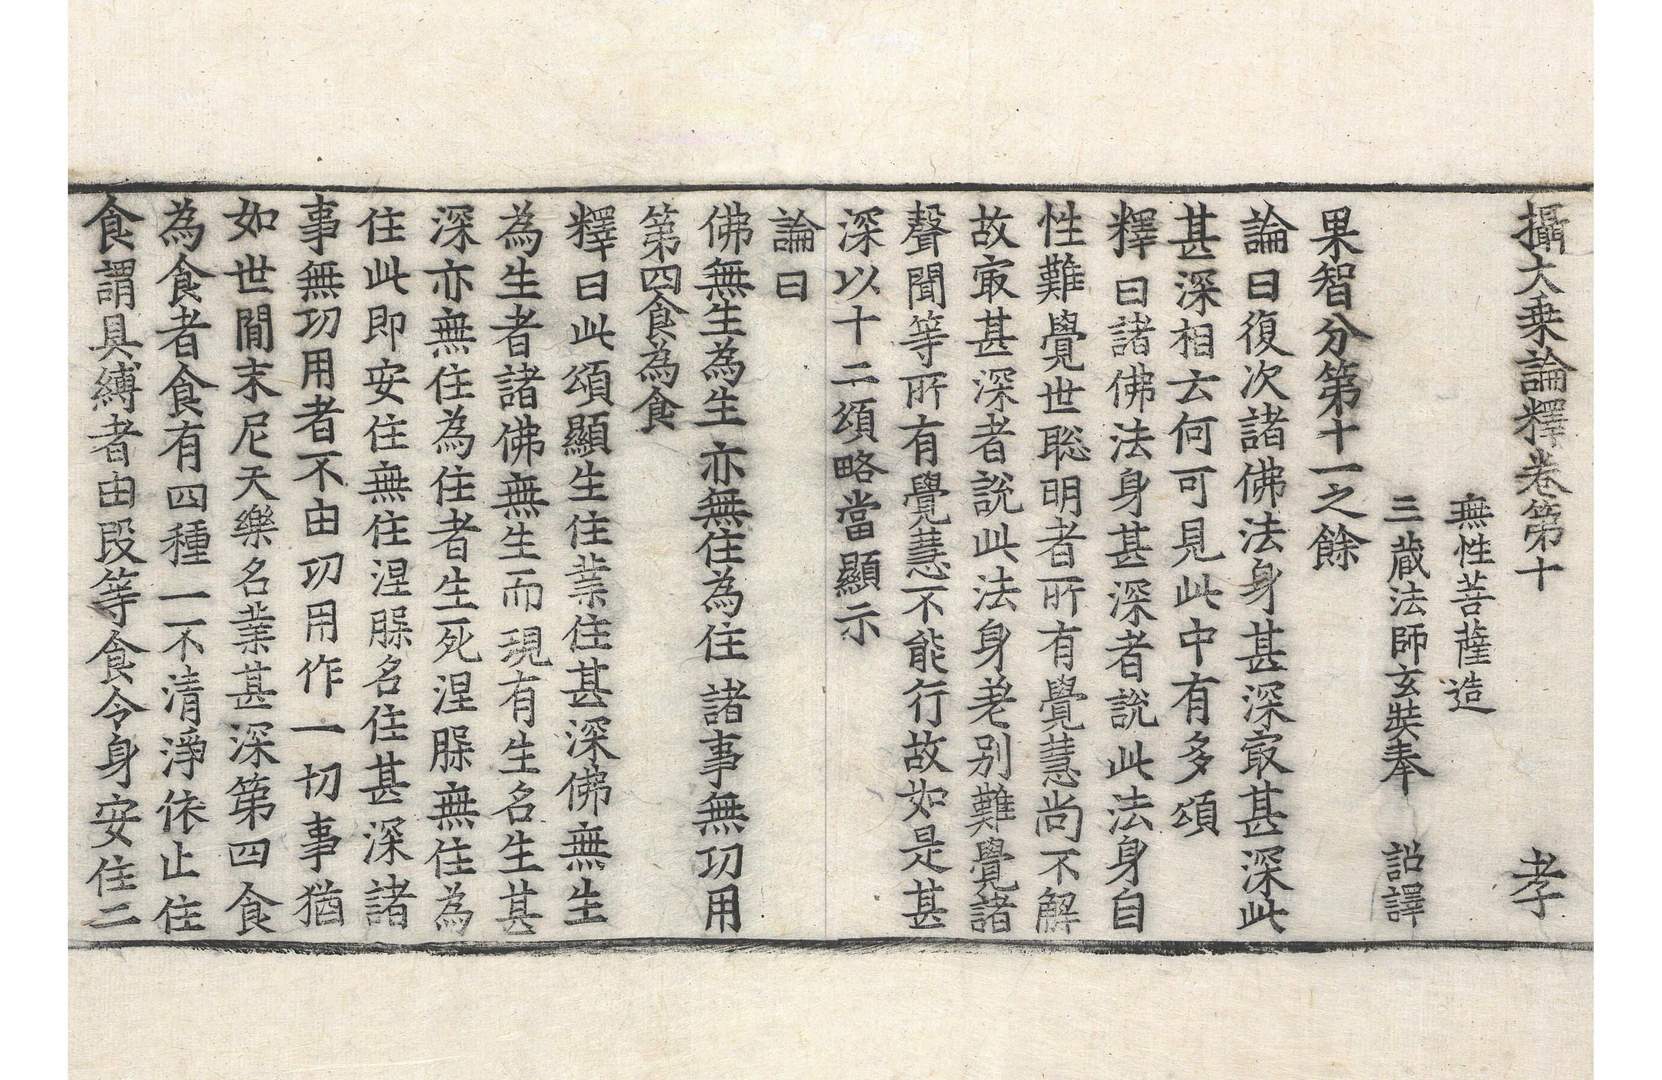 攝大乗論釋卷第十　孝
無性菩薩造
三蔵法師玄奘奉　詔譯
果智分第十一之餘
論曰復次諸佛法身甚深㝡甚深此
甚深相云何可見此中有多頌
釋曰諸佛法身甚深者說此法身自
性難覺世聡明者所有覺慧尚不解
故㝡甚深者說此法身差別難覺諸
聲聞等所有覺慧不能行故如是甚
深以十二頌略當顯示
論曰
佛無生為生　亦無住為住　諸事無功用
第四食為食
釋曰此頌顯生住業住甚深佛無生
為生者諸佛無生而現有生名生甚
深亦無住為住者生死涅槃無住為
住此即安住無住涅槃名住甚深諸
事無功用者不由功用作一切事猶
如世間末尼天樂名業甚深第四食
為食者食有四種一不清淨依止住
食謂具縛者由段等食令身安住二